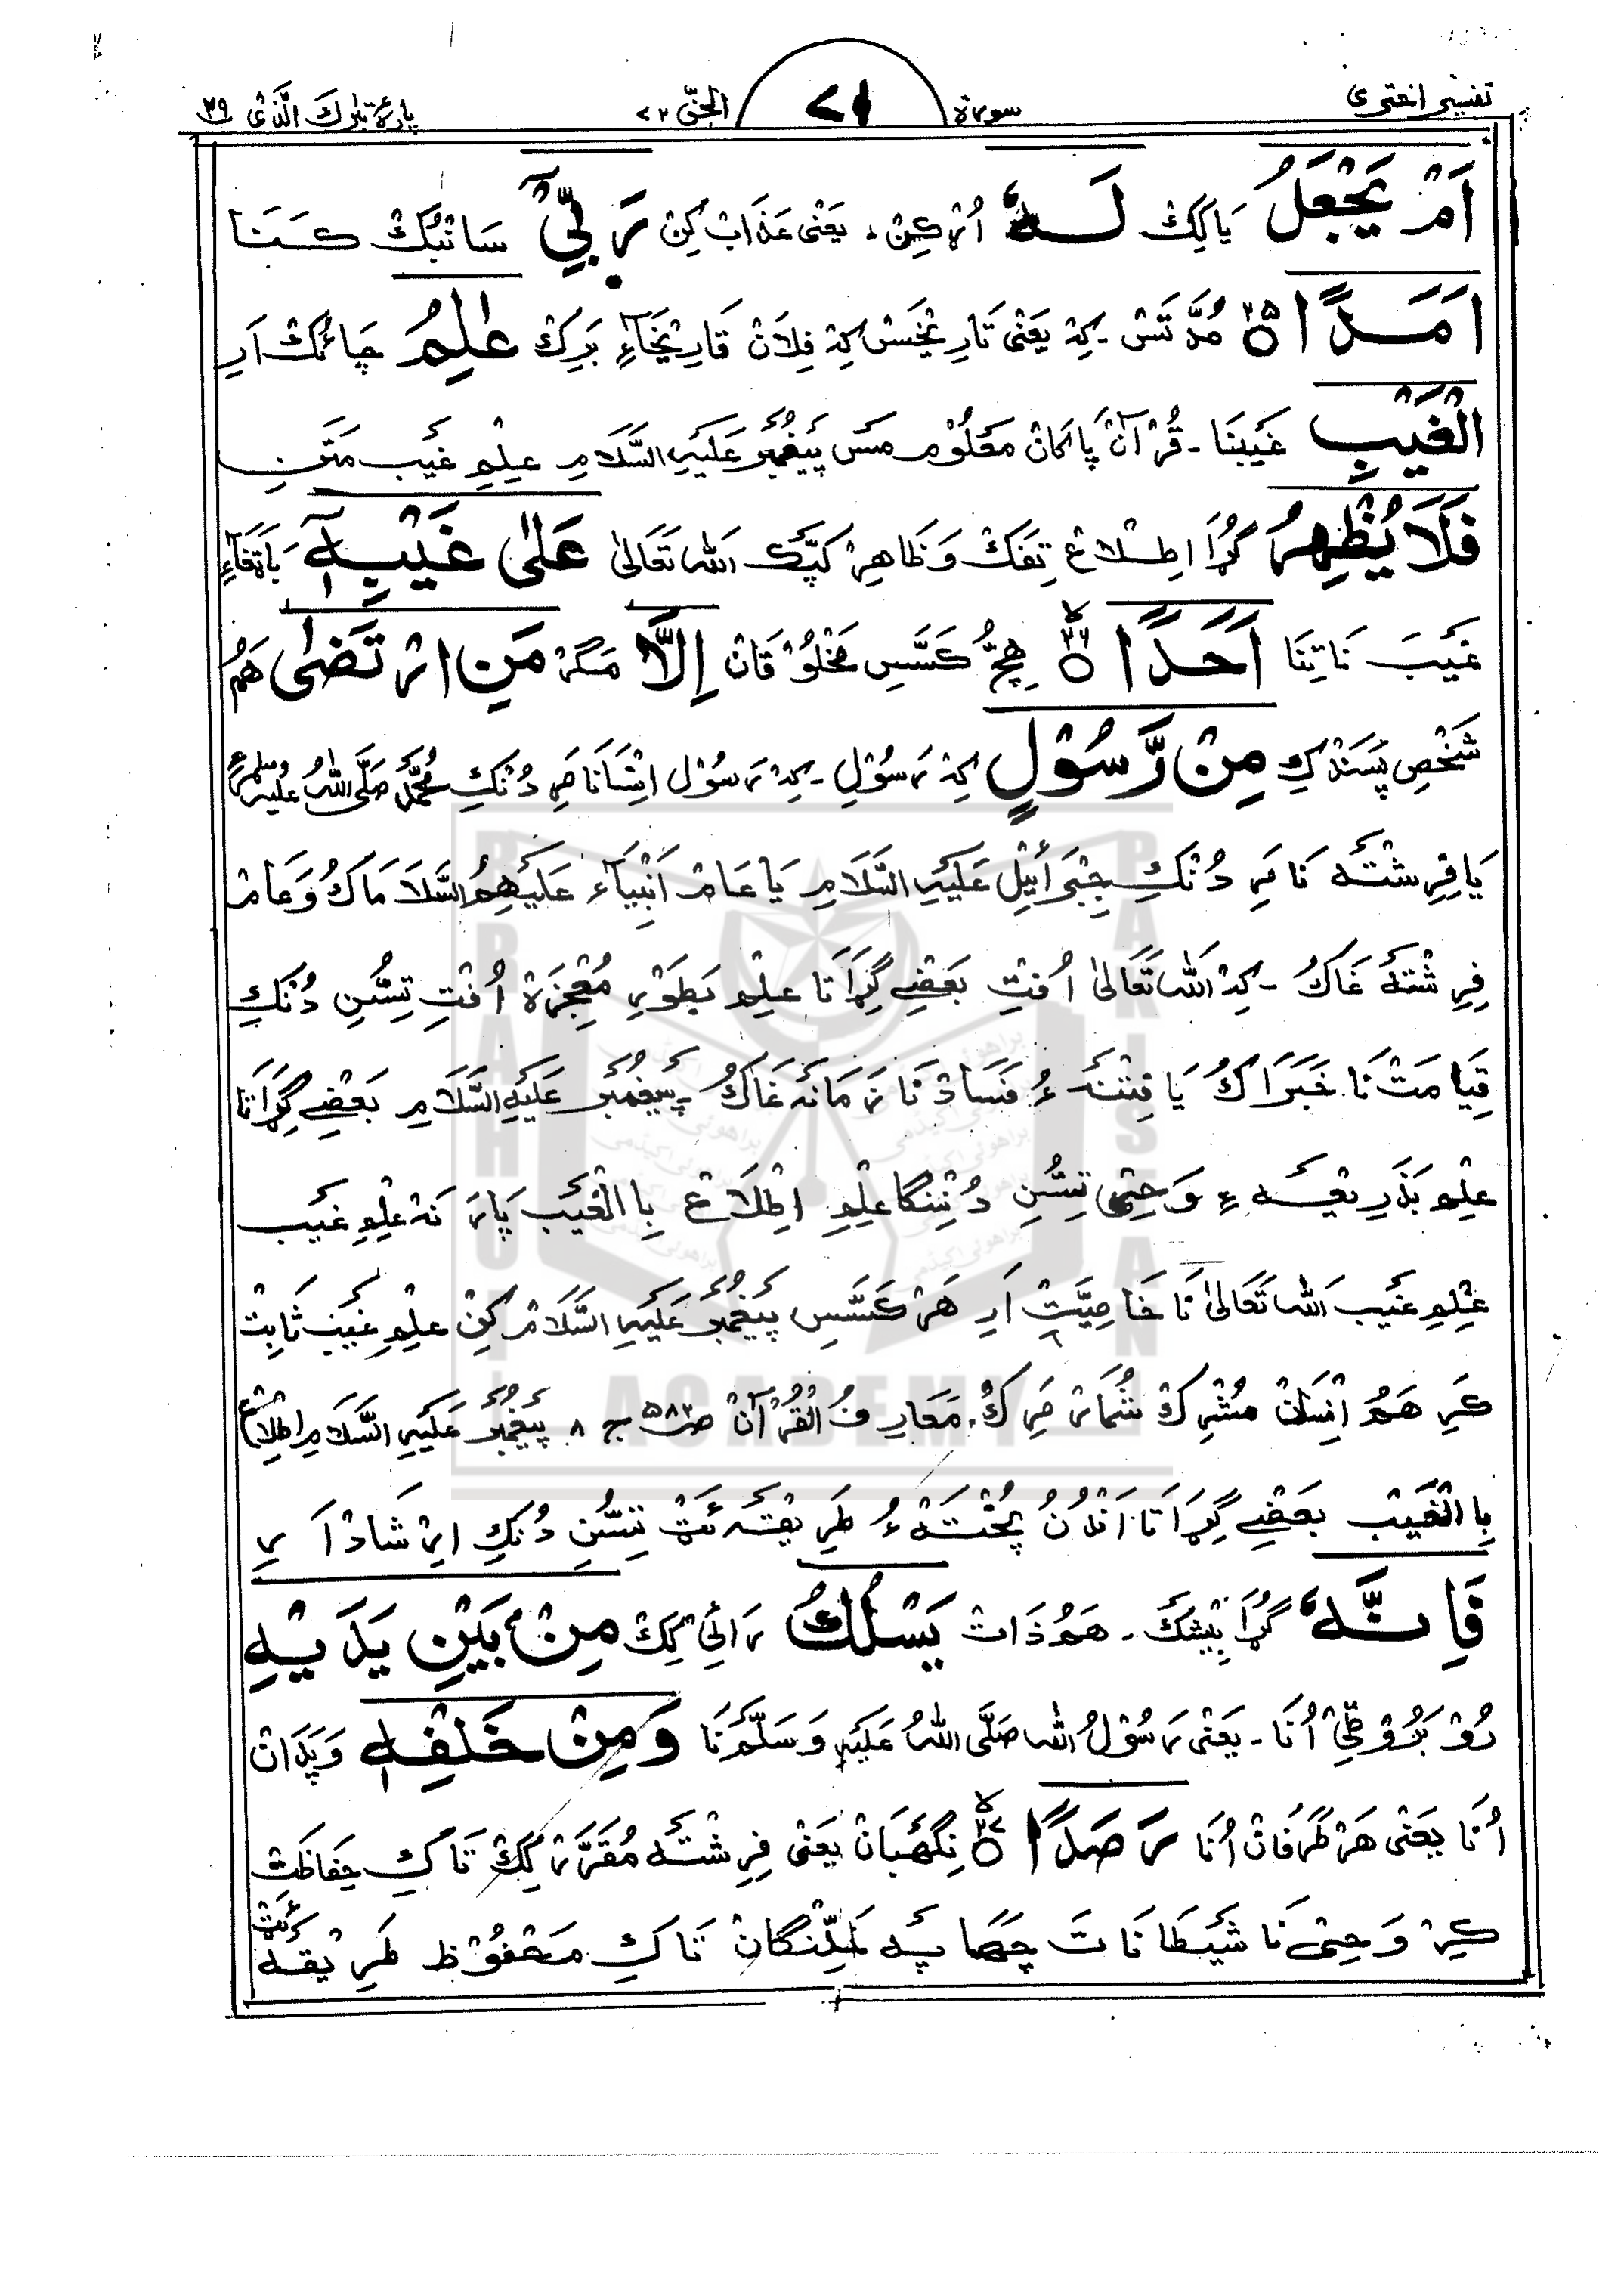 تفسیر اختری سورة ۷۱ الجنّ ۷۲ پارۂ تبٰرک الَّذی ۲۹
اَمْ یَجْعَلُ یَا کِکْ لَہٗ اُرْکِنْ، یَعْنٰی عَذَابْ کِنْ رَبِّیْٓ سَانْبُکْ کَنَا
اَمَدًا ۝۲۵ مُدَّتَسْ ۔ کِہْ یَعْنٰی تَارِیْخَسْ کِہْ فِلَانْ تَارِیْخَآءِ بَرِکْ عٰلِمُ چَائُکْ اَرِ
الْغَیْبِ غَیْبَنَا ۔ قُرْآنْ پَاکَانْ مَعْلُوْم مَسَ پَیْغَمْبَرْ عَلَیْہِ السَّلَامِ عِلْمِ غَیْب مَتَنِ
فَلَا یُظْہِرُ گُڑَا اِطِلَاعْ تِفَکْ وَ ظَاہِرْ کَپَّکْ اَللہ تَعَالیٰ عَلٰی غَیْبِہٖٓ بَاتَغَاءِ
غَیْبَ نَا تِنَا اَحَدًا ۝۲۶ ہِچُّ کَسَّسِ مَخْلُوْقَانْ اِلَّا مَگَرْ مَنِ ارْتَضٰی ہَمُ
شَخْصِ پَسَنْد کِ مِنْ رَّسُوْلٍ کِہْ رَسُوْلِ ۔ کِہْ رَسُوْل اِنْسَانَا مَرِ دُنْکِ مُحَمَّدْ صَلَّی اللہُ عَلَیْہِ وسلم
یَا فِرِشْتَہ نَا مَرِ دُنْکِ جِبْرَائِیْلْ عَلَیْہِ السَّلَامِ یَا عَامْ اَنْبِیَآء عَلَیْہِمُ السَّلَامَاکُ وَ عَامْ
فِرِشْتَہ غَاکُ ۔ کِہْ اَللہ تَعَالیٰ اُفْتِ بَعْضِے گِڑَاتَا عِلْم بَطَوْرِ مُعْجِزَۃْ اُفْتِ تِسُّنِ دُنْکِ
قِیَامَتْ نَا خَبَرَاکُ یَا فِتْنَہ ءُ فَسَادْ نَا زَمَانَہ غَاکُ ۔ پَیْغَمْبَرْ عَلَیْہِ السَّلَامِ بَعْضِے گِڑَاتَا
عِلْم بَذَرِیْعَہ ءِ وَحِیْ تِسُّنِ دُنْنِگَا عِلْمِ اِطِلَاعْ بِاالْغَیْبْ پَارَ نَہ عِلْمِ غَیْب
عِلْمِ غَیْب اَللہ تَعَالیٰ نَا خَاصِیَّتِ اَرِ ہَرْ کَسَّسِ پَیْغَمْبَرْ عَلَیْہِ السَّلَامْ کِنْ عِلْمِ غَیْبْ ثَابِتْ
کَرِ ہَمُ اِنْسَانْ مُشْرِکْ شُمَارْ مَرِکْ، مَعَارِفُ الْقُرْآنْ صـ۵۸۳ ج ۸ پَیْغَمْبَرْ عَلَیْہِ السَّلَامِ اِطِلَاعْ
بِاالْغَیْبْ بَعْضِے گِڑَاتَا اَنْدُنُ پُخْتَہ ءُ طَرِیْقَہ ئَتْ تِسُّنِ دُنْکِ اِرْشَادْ اَرِ
فَاِنَّہٗ گُڑَا بِیْشَکْ ۔ ہَمُ ذَاتْ یَسْلُکُ رَائِیْ کِکْ مِنْۢ بَیْنِ یَدَیْہِ
رُوْبَرُوْ ئِیْ اُنَا ۔ یَعْنٰی رَسُوْلُ اللہ صَلَّی اللہُ عَلَیْہِ وَسَلَّمْ نَا وَمِنْ خَلْفِہٖ وَ پَدَانْ
اُنَا یَعْنٰی ہَرْ طَرَفَانْ اُنَا رَصَدًا ۝۲۷ نِگَہْبَانْ یَعْنٰی فِرِشْتَہ مُقَرَّرْ کِکْ تَاکِ حِفَاظَتْ
کِرْ وَحِیْ نَا شَیْطَانَاتَ چَھَاپَہ خَلِّنْگَانْ تَاکِ مَحْفُوْظْ طَرِیْقَہ ئَتْ
BRAHUI ACADEMY PAKISTAN
براھوئی اکیڈمی